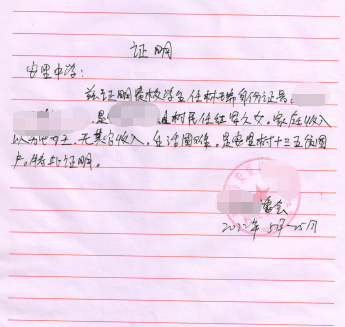 证明
中学：
兹证明贵校学生任林瑞身份证号：
，是 村民任红军之女。家庭收入
以务农为主，无其它收入，生活困难，是 村十三五贫困
户。特此证明。
委会
2022年5月25日